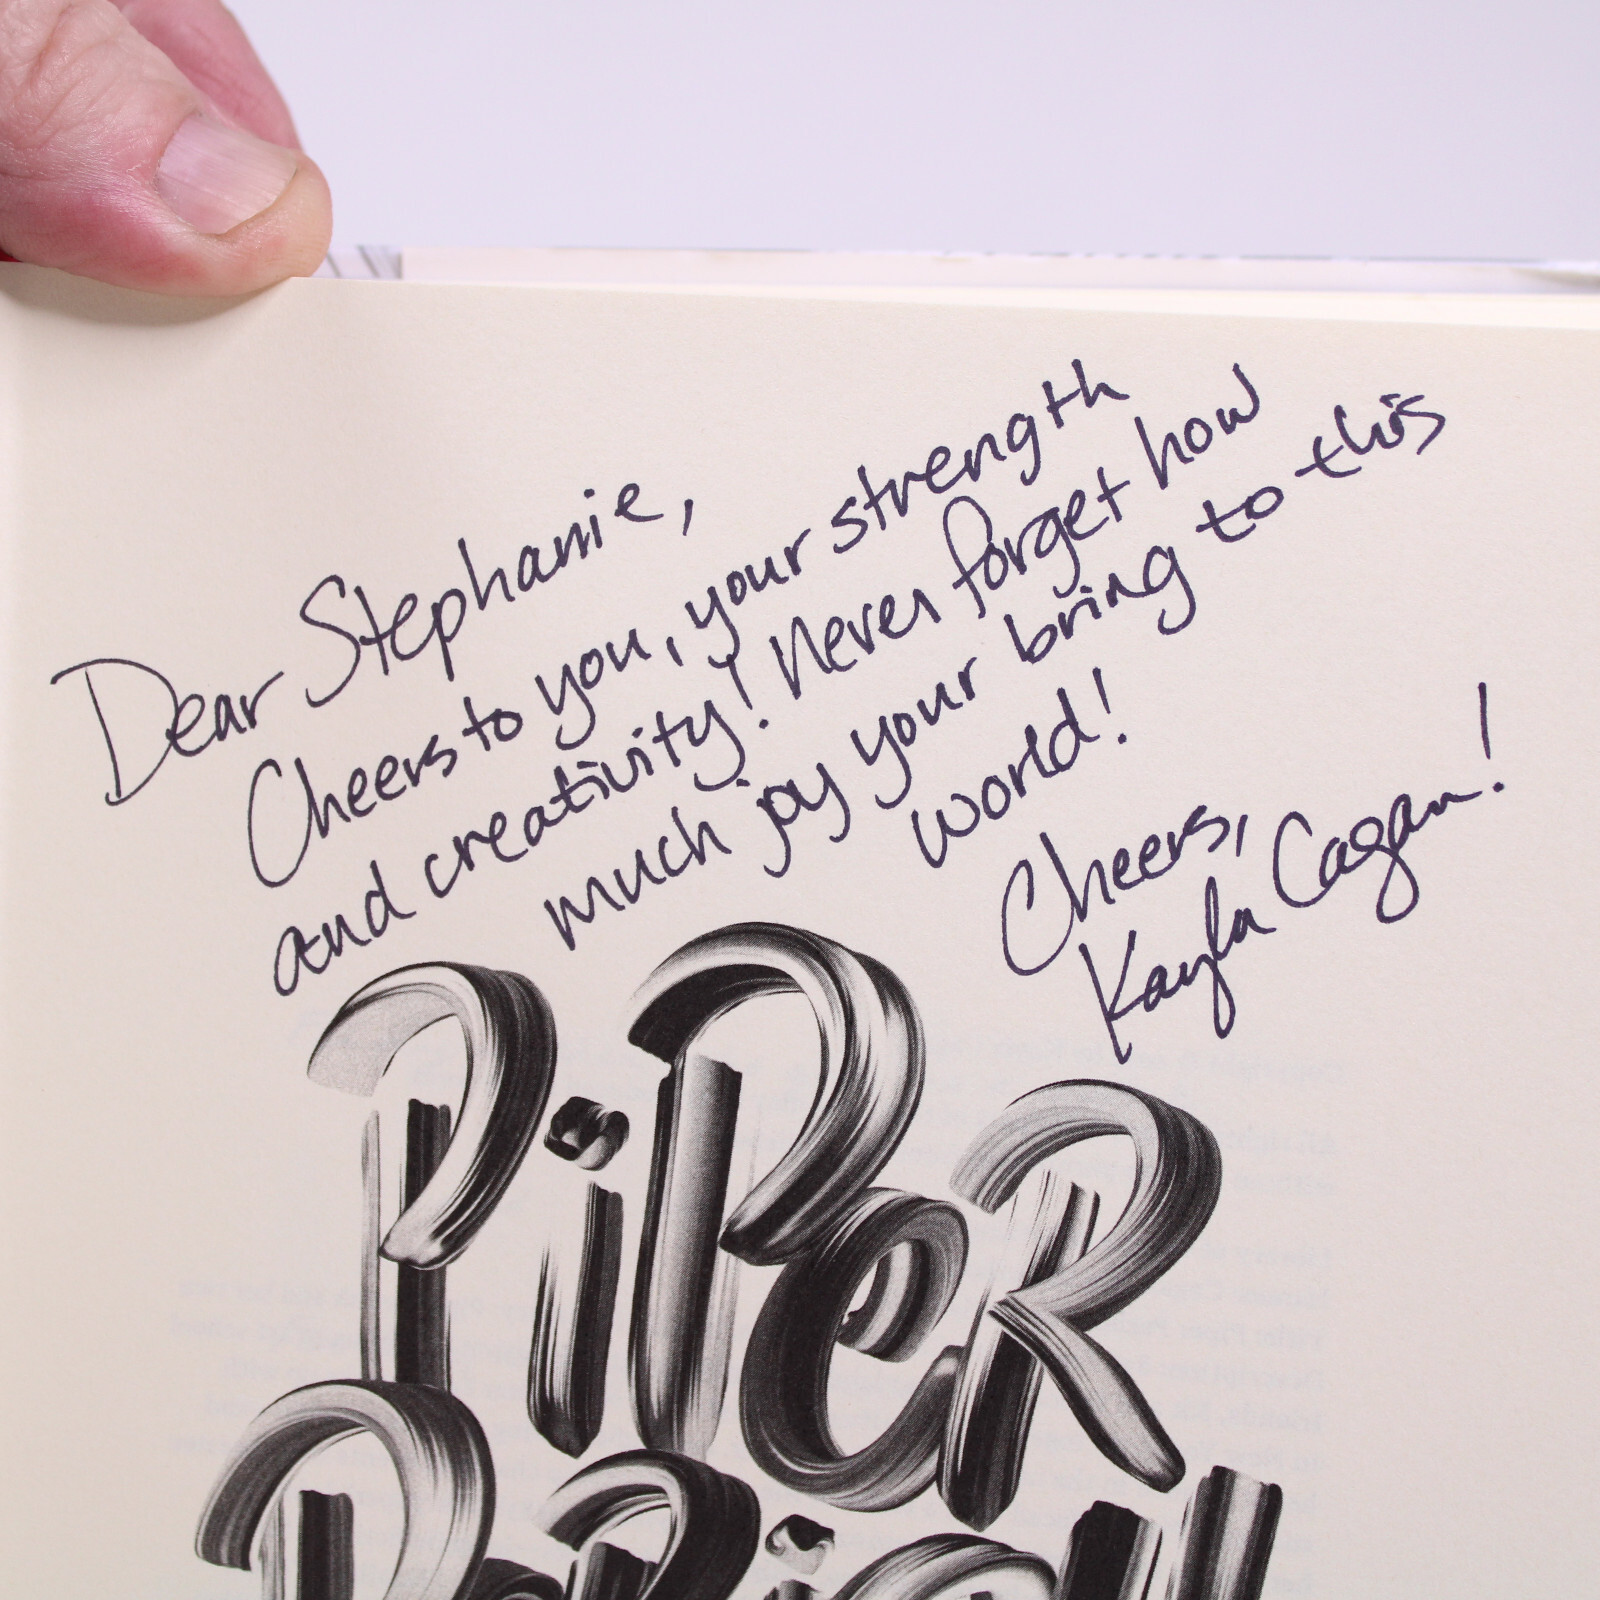 Dear Stephanie,
Cheers to you, your strength
and creativity! Never forget how
much joy your bring to this
world!
Cheers,
Kayla Cagan!
PiPeR
PeRiSH